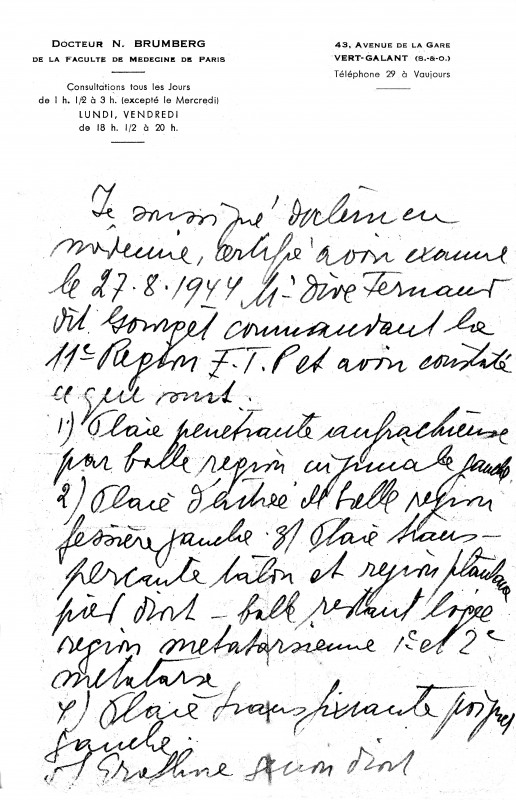 DOCTEUR N. BRUMBERG
DE LA FACULTE DE MEDECINE DE PARIS
Consultations tous les Jours
de 1 h. 1/2 à 3 h. (excepté le Mercredi)
LUNDI, VENDREDI
de 18 h. 1/2 à 20 h.
43, AVENUE DE LA GARE
VERT-GALANT (S.-&-O.)
Téléphone 29 à Vaujours
Je soussigné docteur en
médecine, certifie avoir examiné
le 27.8.1944 Mr Dive Fernand
dit Georget commandant la
11e Region F.T.P et avoir constaté
ce qui suit.
1) Plaie penetrante anfractueuse
par balle region inguinale gauche
2) Plaie d'entrée de balle region
fessière gauche. 3) Plaie trans-
percante talon et region plantaire
pied droit - balle restant logée
region metatarsienne 1e et 2e
metatarse
4) Plaie transfixiante poignet
gauche.
5) Eraflure genou droit